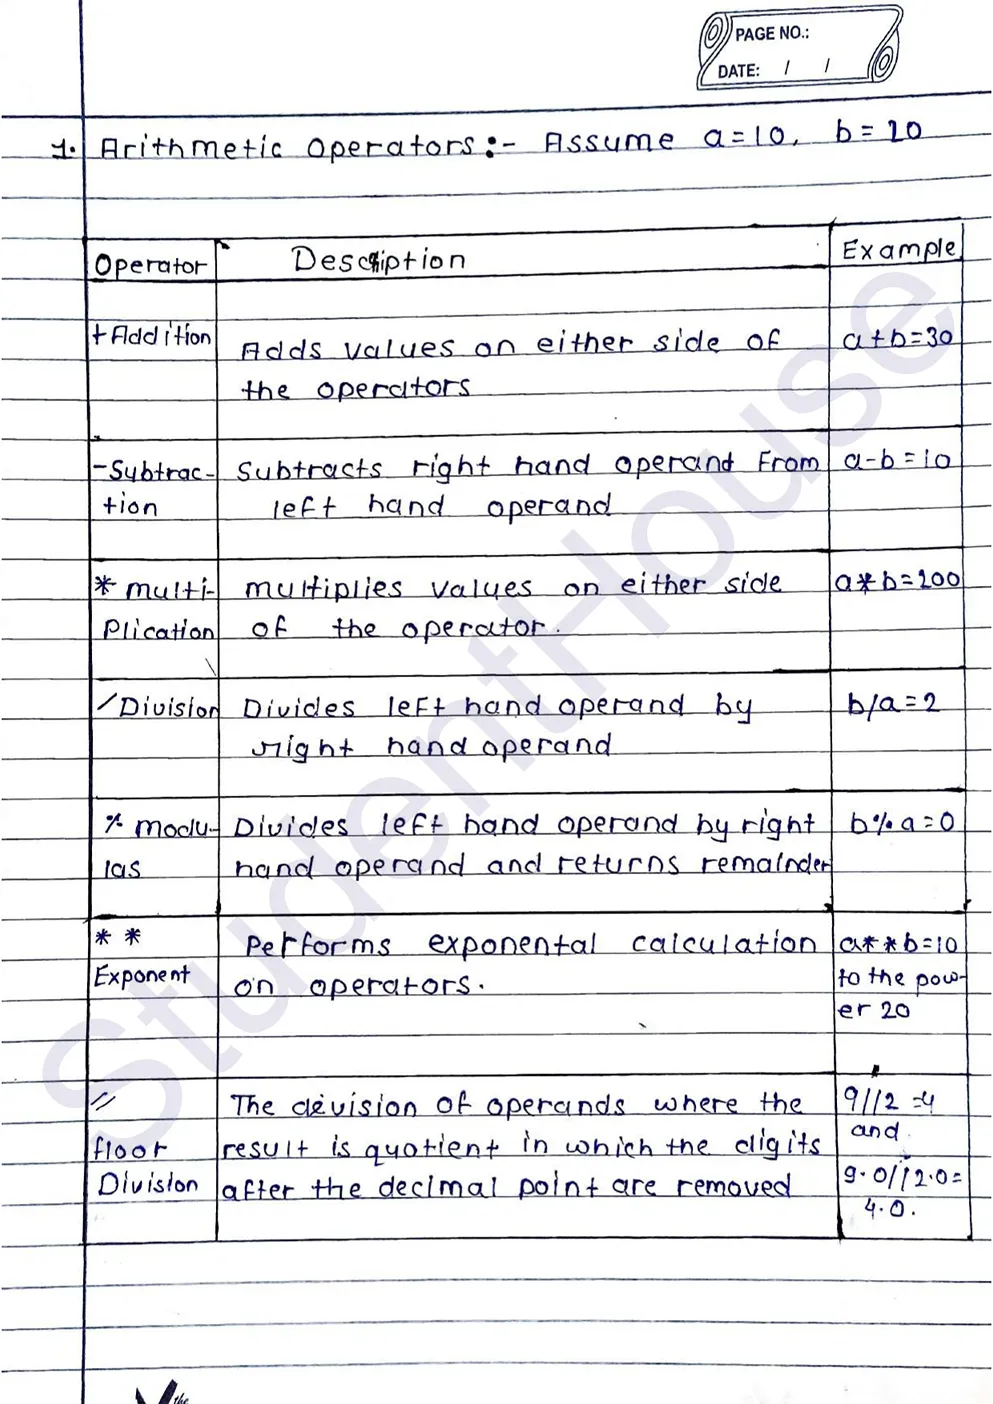 PAGE NO.:
DATE: / /
1. Arithmetic operators:- Assume a=10, b=20
Operator Description Example
+Addition Adds values on either side of a+b=30
the operators
-Subtrac- Subtracts right hand operand From a-b=10
tion left hand operand
* multi- multiplies values on either side a*b=200
Plication of the operator.
/Division Divides left hand operand by b/a=2
right hand operand
% modu- Divides left hand operand by right b% a=0
las hand operand and returns remainder
** Performs exponental calculation a**b=10
Exponent on operators. to the pow-
er 20
// The devision of operands where the 9//2=4
and
floor result is quotient in which the digits
Division after the decimal point are removed 9.0//2.0=
4.0.
the
StudentHouse